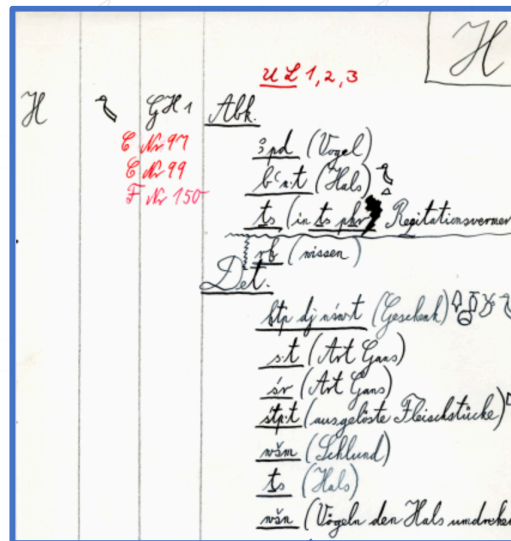 H
UL 1, 2, 3
H GH 1 Abk.
C Nr 97
ꜣpd (Vogel)
C Nr 99
(Hals)
F Nr 150
ṯs (in ṯs pẖr Rezitationsvermer
rḫ (wissen)
Det.
ḥtp dj nśwt (Geschenk)
s.t (Art Gans)
śr (Art Gans)
stp.t (ausgelöste Fleischstücke)
wšm (Schlund)
ṯs (Hals)
wšn (Vögeln den Hals umdrehen